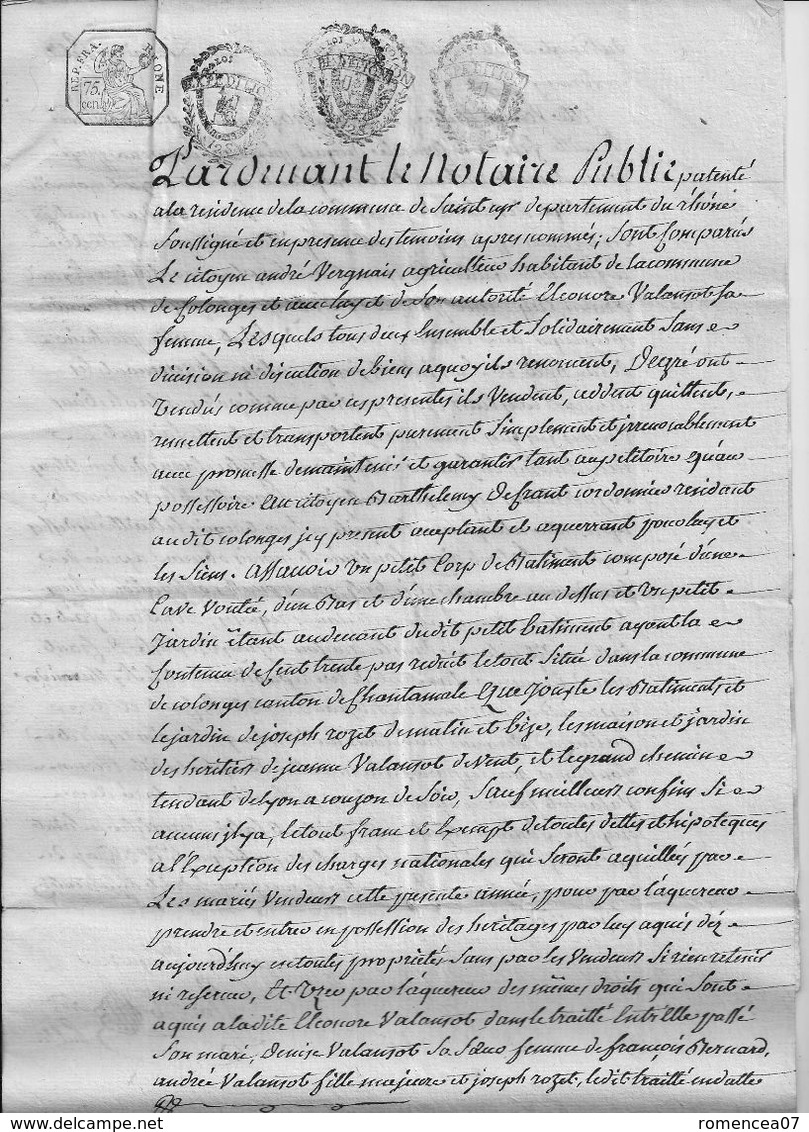 REP. FRA. RHONE
75. cent.
EXPEDITION
EXPEDITION
EXPEDITION
Pardevant le Notaire Public patenté
ala residence de la commune de Saint cyr departement du rhône
Soussigné et en presence des temoins apres nommés; Sont Comparus
Le citoyen andré Vergnais agriculteur habitant de la commune
de Colonges et avec luy et de son autorité Eleonore Valansot sa
femme, Lesquels tous deux Ensemble et Solidairement Sans
division ni discution de biens aquoy ils renoncent, De gré ont
Vendus comme par ces presentes ils Vendent, ceddent quittent,
remettent et transportent purement Simplement et irrevocablement
avec promesse de maintenir et garantir tant au petitoire qu'au
possessoire. Au citoyen Barthelemy Defrant cordonnier residant
audit colonges icy present aceptant et aquerrant pour luy et
les Siens. Assavoir un petit Corp de Batiment composé d'une
Cave Voutée, d'un Bas et d'une chambre au dessus et un petit
Jardin êtant au devant dudit petit batiment ayant la
Contenue de Cent trente pas reduit le tout Situé dans la commune
de colonges canton de Chantamale Que Jouxte les Batiments et
le jardin de joseph rozet de matin et bize, les maison et jardin
des heritiers de jeanne Valansot de Vent, et le grand chemin
tendant de lyon a couzon de Soir, Sauf meilleurs confins Si
aucuns il y a, le tout franc et Exempt de toutes dettes et hipoteques
a l'Exeption des charges nationales qui Seront aquittées par
Les mariés Vendeurs cette presente année, pour par l'aquereur
prendre et entrer en possession des heritages par luy aquis dez
aujourd'huy en toutes proprietés Sans par les Vendeurs Si rien retenir
ni reserver, Et User par l'aquereur des mêmes droits qui Sont
aquis a la dite Eleonore Valansot dans le traitté Entr'Elle passé
Son mari, Denise Valansot Sa Sœur femme de françois Bernard,
andrée Valansot fille majeure et joseph rozet, ledit traitté en datte
romencea07